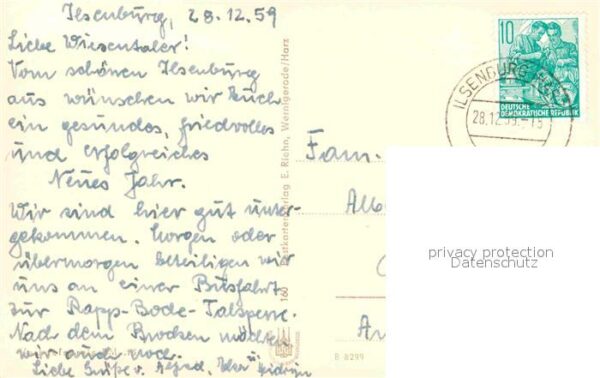 Ilsenburg, 28.12.59
Liebe Wiesentaler!
Vom schönen Ilsenburg
aus wünschen wir Euch
ein gesundes, friedvolles
und erfolgreiches
Neues Jahr.
Wir sind hier gut unter-
gekommen. Morgen oder
übermorgen beteiligen wir
uns an einer Busfahrt
zur Rapp-Bode-Talsperre.
Nach dem Brocken möchten
wir auch noch.
Liebe Grüße v. Alfred, u.
160 Postkartenverlag E. Riehn, Wernigerode/Harz
10
DEUTSCHE
DEMOKRATISCHE REPUBLIK
ILSENBURG
28.12.59.-15
Fam.
privacy protection
Datenschutz
B 8299